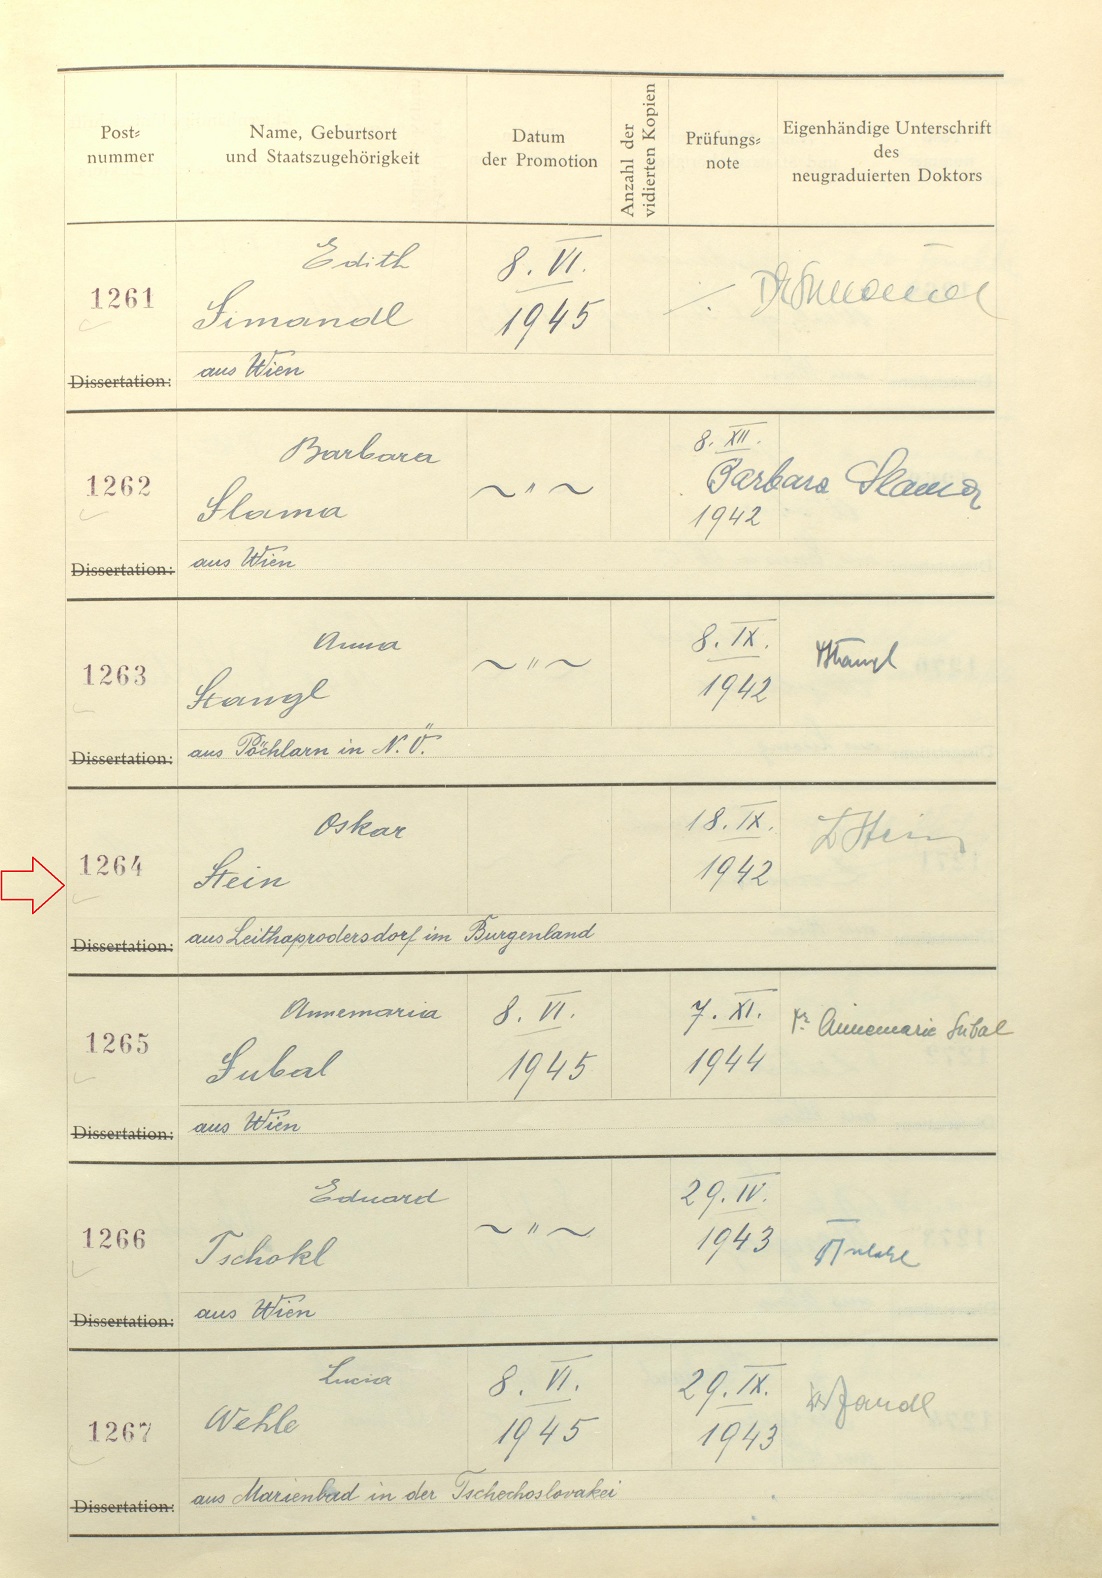 Post-
nummer
Name, Geburtsort
und Staatszugehörigkeit
Datum
der Promotion
Anzahl der
vidierten Kopien
Prüfungs-
note
Eigenhändige Unterschrift
des
neugraduierten Doktors
1261
Edith
Simandl
8. VI.
1945
Dissertation: aus Wien
1262
Barbara
Slama
~ " ~
8. XII.
1942
Barbara Slama
Dissertation: aus Wien
1263
Anna
Stangl
~ " ~
8. IX.
1942
Stangl
Dissertation: aus Pöchlarn in N.Ö.
1264
Oskar
Stein
18. IX.
1942
Stein
Dissertation: aus Leithaprodersdorf im Burgenland
1265
Annemaria
Subal
8. VI.
1945
7. XI.
1944
Dr Annemarie Subal
Dissertation: aus Wien
1266
Eduard
Tschokl
~ " ~
29. IV.
1943
Dissertation: aus Wien
1267
Lucia
Wehle
8. VI.
1945
29. IX.
1943
Dissertation: aus Marienbad in der Tschechoslovakei